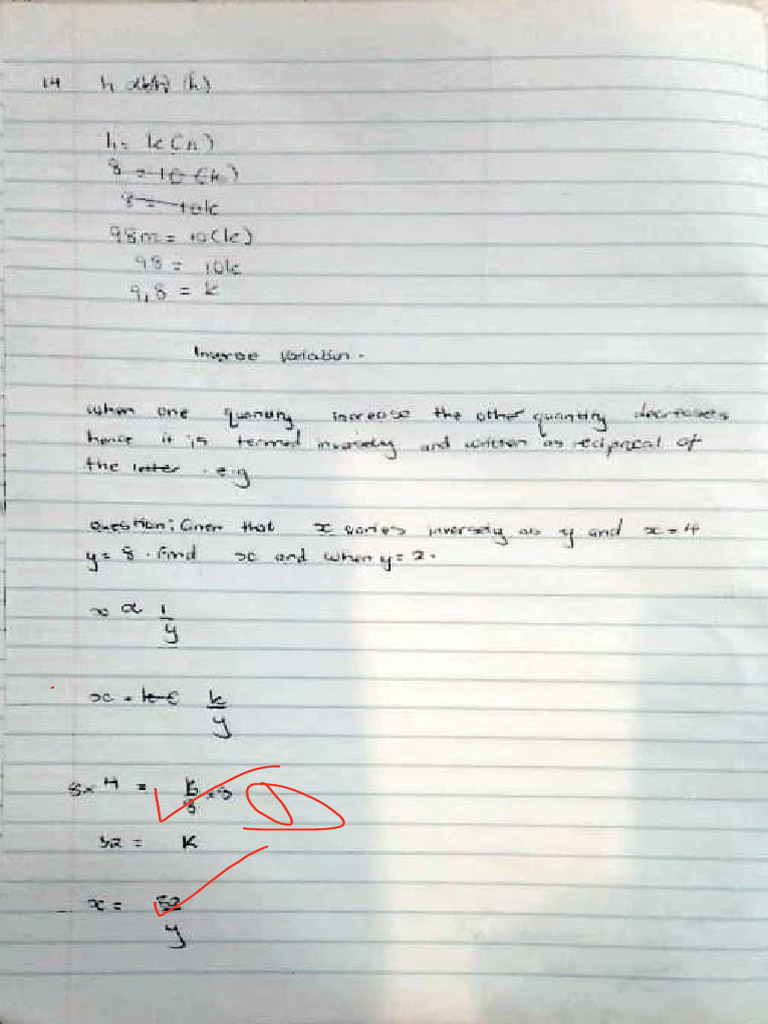 14 h
h = k(h)
8 = 10 (k)
8 = 10k
98m = 10(k)
98 = 10k
9,8 = k
Inverse Variation.
when one quantity increase the other quantity decreases
hence it is termed inversely and written as reciprocal of
the letter. e.g
question: Given that x varies inversely as y and x = 4
y = 8. Find x and when y = 2.
x ∝ 1/y
x = k/y
8 × 4 = k/8 × 8
32 = K
x = 32/y